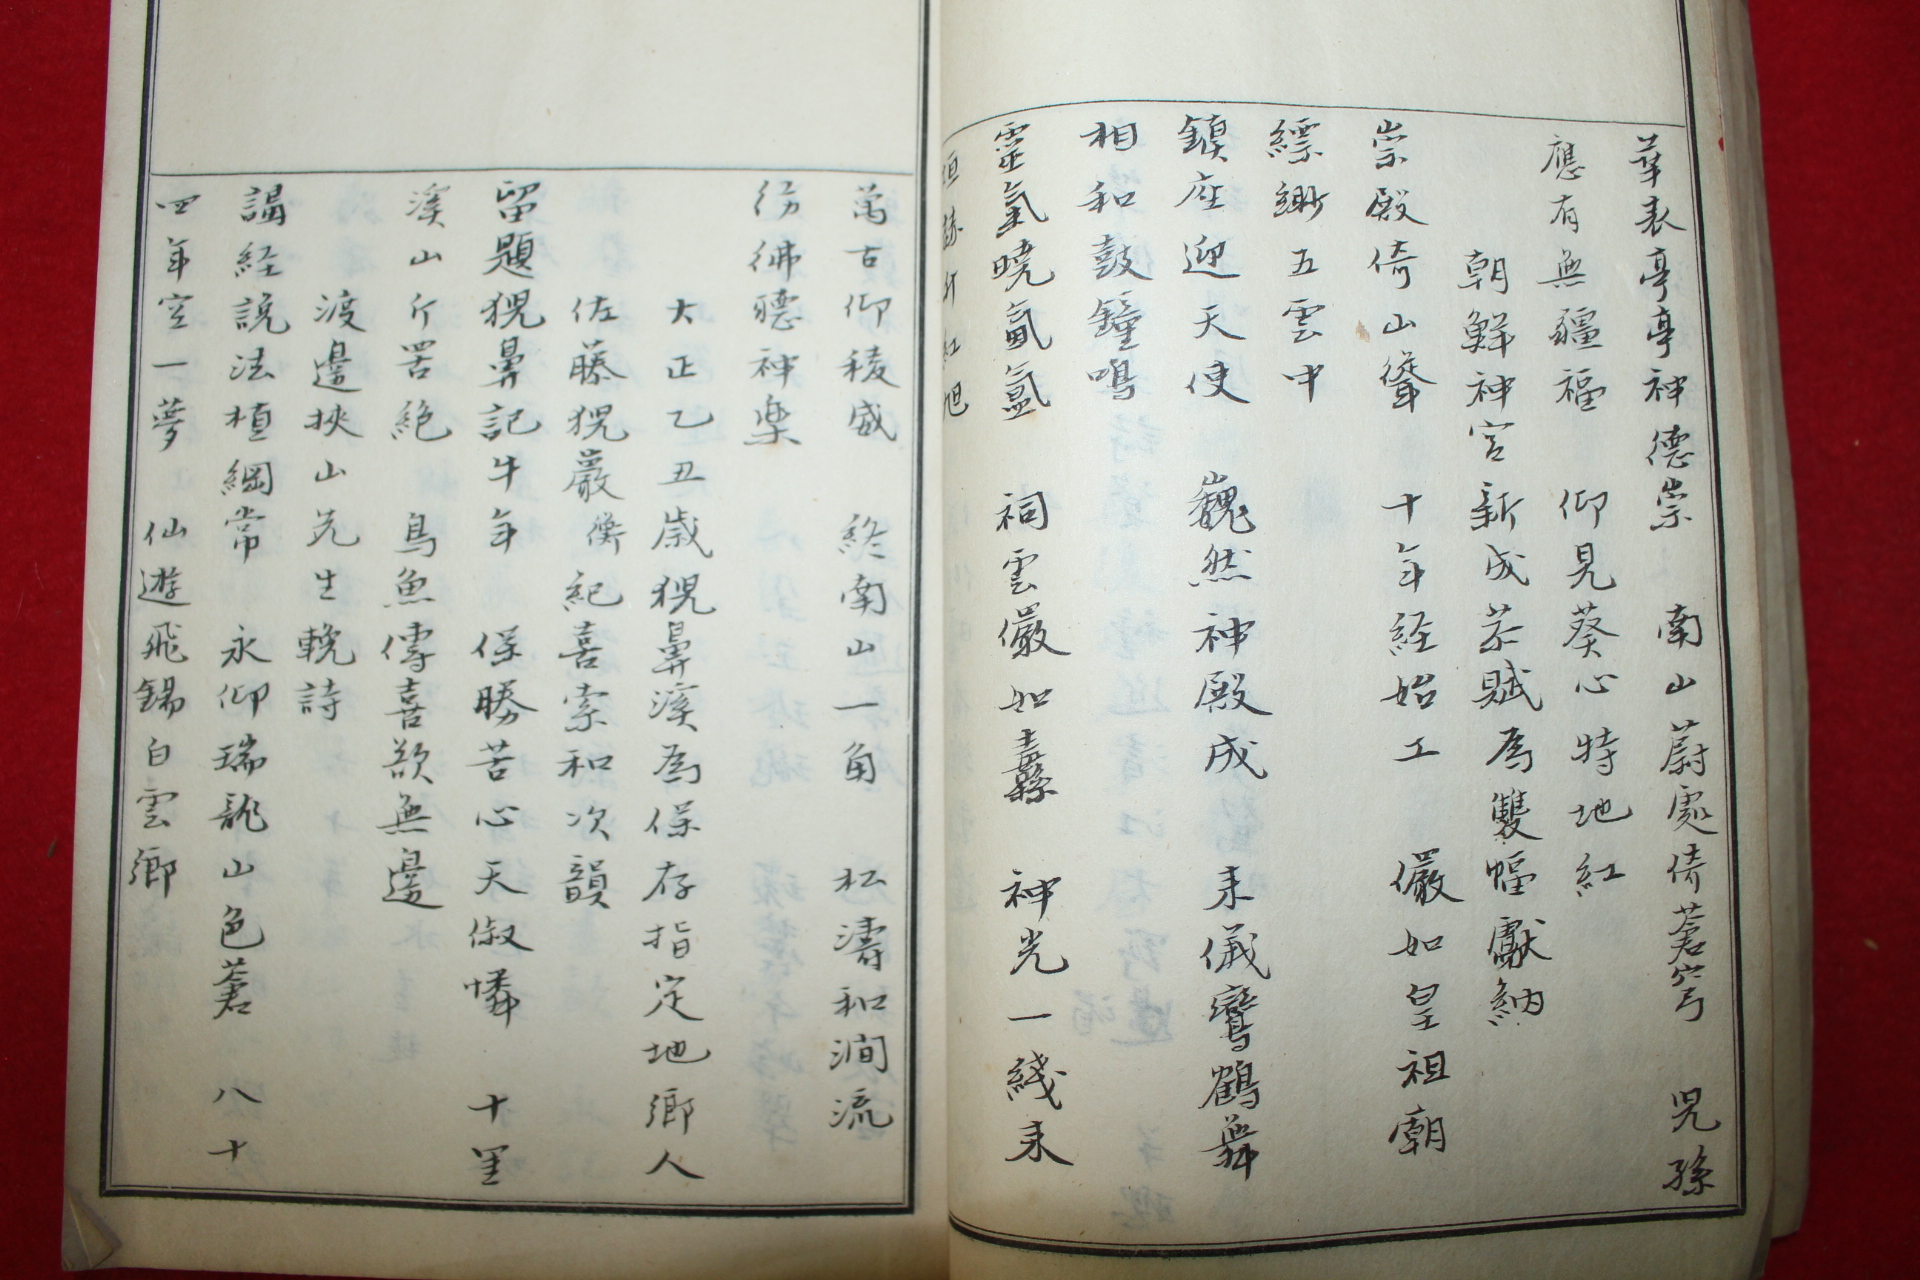 華表亭亭神德崇　南山蔚處倚蒼穹　児孫
應有無疆福　仰見葵心特地紅
朝鮮神宮新成恭賦為雙幅獻納
崇殿倚山聳　十年経始工　儼如皇祖朝
縹緲五雲中
鎮座迎天使　巍然神殿成　来儀鸞鶴舞
相和鼓鐘鳴
靈氣曉氤氳　祠雲儼如纛　神光一綫来
紅旭
萬古仰稜威　終南山一角　松濤和澗流
彷彿聴神楽
大正乙丑歳猊鼻溪為保存指定地郷人
佐藤猊巖衡紀喜索和次韻
留題猊鼻記牛年　保勝苦心天俶憐　十里
溪山斤罟絶　鳥魚儔喜欲無邊
渡邊挾山先生輓詩
謁経説法植綱常　永仰瑞龍山色蒼　八十
四年空一夢　仙遊飛錫白雲郷